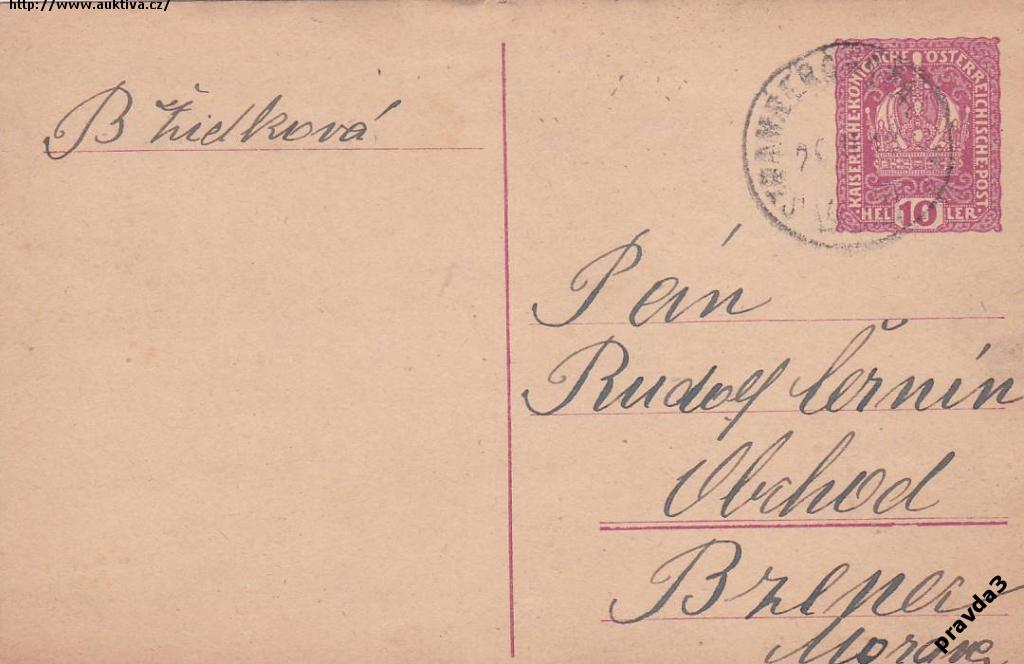 http://www.auktiva.cz/
B Židková
KAISERLICHE·KÖNIGLICHE ÖSTERREICHISCHE·POST
HEL 10 LER
Pán
Rudolf Černín
Obchod
Bzenec
pravda3